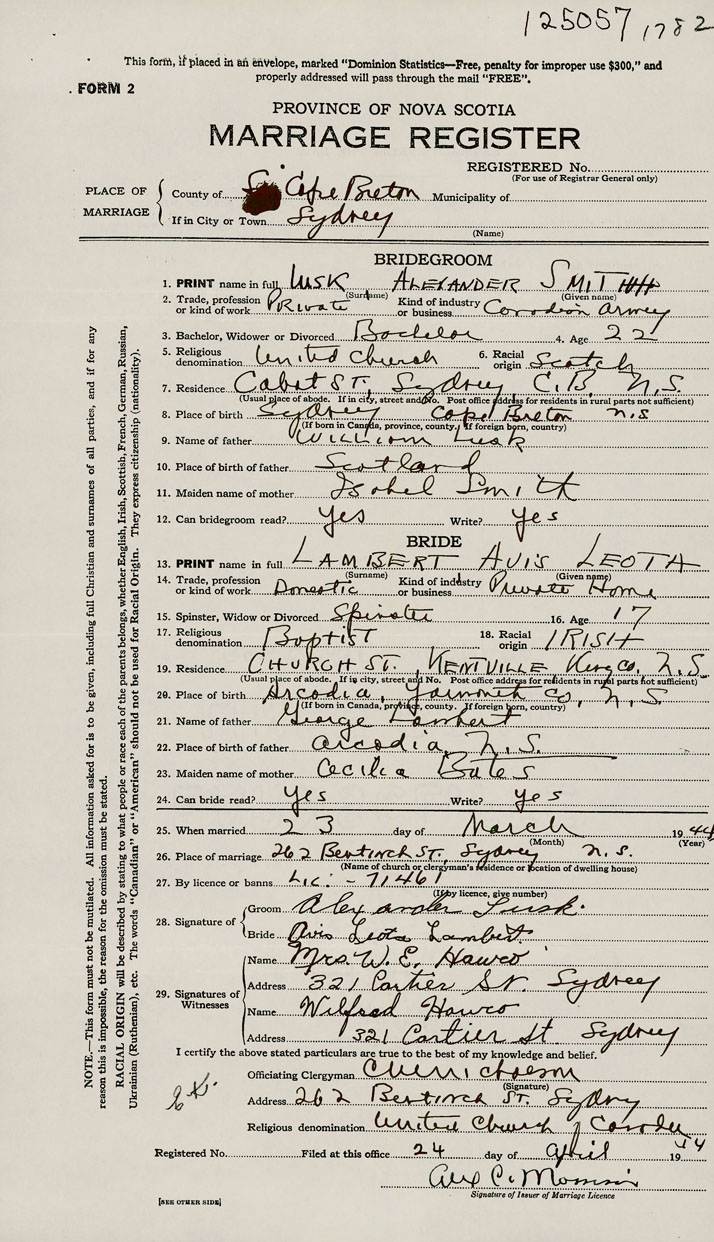 125057 1782
This form, if placed in an envelope, marked "Dominion Statistics—Free, penalty for improper use $300," and
properly addressed will pass through the mail "FREE".
FORM 2
PROVINCE OF NOVA SCOTIA
MARRIAGE REGISTER
REGISTERED No.
(For use of Registrar General only)
PLACE OF MARRIAGE
County of Cape Breton Municipality of
If in City or Town Sydney
(Name)
BRIDEGROOM
1. PRINT name in full LUSK ALEXANDER SMITH
(Surname) (Given name)
2. Trade, profession or kind of work Private Kind of industry or business Canadian Army
3. Bachelor, Widower or Divorced Bachelor 4. Age 22
5. Religious denomination United Church 6. Racial origin Scotch
7. Residence Cabot ST., Sydney, C.B., N.S.
(Usual place of abode. If in city, street and No. Post office address for residents in rural parts not sufficient)
8. Place of birth Sydney Cape Breton N.S
(If born in Canada, province, county. If foreign born, country)
9. Name of father William Lusk
10. Place of birth of father Scotland
11. Maiden name of mother Isobel Smith
12. Can bridegroom read? Yes Write? Yes
BRIDE
13. PRINT name in full LAMBERT AVIS LEOTA
(Surname) (Given name)
14. Trade, profession or kind of work Domestic Kind of industry or business Private Home
15. Spinster, Widow or Divorced Spinster 16. Age 17
17. Religious denomination Baptist 18. Racial origin IRISH
19. Residence CHURCH ST., KENTVILLE King Co, N.S.
(Usual place of abode. If in city, street and No. Post office address for residents in rural parts not sufficient)
20. Place of birth Arcadia, Yarmouth Co, N.S
(If born in Canada, province, county. If foreign born, country)
21. Name of father George Lambert
22. Place of birth of father Arcadia, N.S.
23. Maiden name of mother Cecilia Bates
24. Can bride read? Yes Write? Yes
25. When married 23 day of March 1944
(Month) (Year)
26. Place of marriage 262 ST., Sydney N.S.
(Name of church or clergyman's residence or location of dwelling house)
27. By licence or banns Lic. - 71461
(If by licence, give number)
28. Signature of
Groom Alexander Lusk
Bride Avis Leota Lambert
29. Signatures of Witnesses
Name Mrs. W. E. Hawco
Address 321 Cartier St. Sydney
Name Wilfred Hawco
Address 321 Cartier St Sydney
I certify the above stated particulars are true to the best of my knowledge and belief.
Officiating Clergyman
(Signature)
Address 262 ST. Sydney
Religious denomination United Church of Canada
Registered No. Filed at this office 24 day of April 1944
Signature of Issuer of Marriage Licence
[SEE OTHER SIDE]
NOTE.—This form must not be mutilated. All information asked for is to be given, including full Christian and surnames of all parties, and if for any
reason this is impossible, the reason for the omission must be stated.
RACIAL ORIGIN will be described by stating to what people or race each of the parents belongs, whether English, Irish, Scottish, French, German, Russian,
Ukrainian (Ruthenian), etc. The words "Canadian" or "American" should not be used for Racial Origin. They express citizenship (nationality).